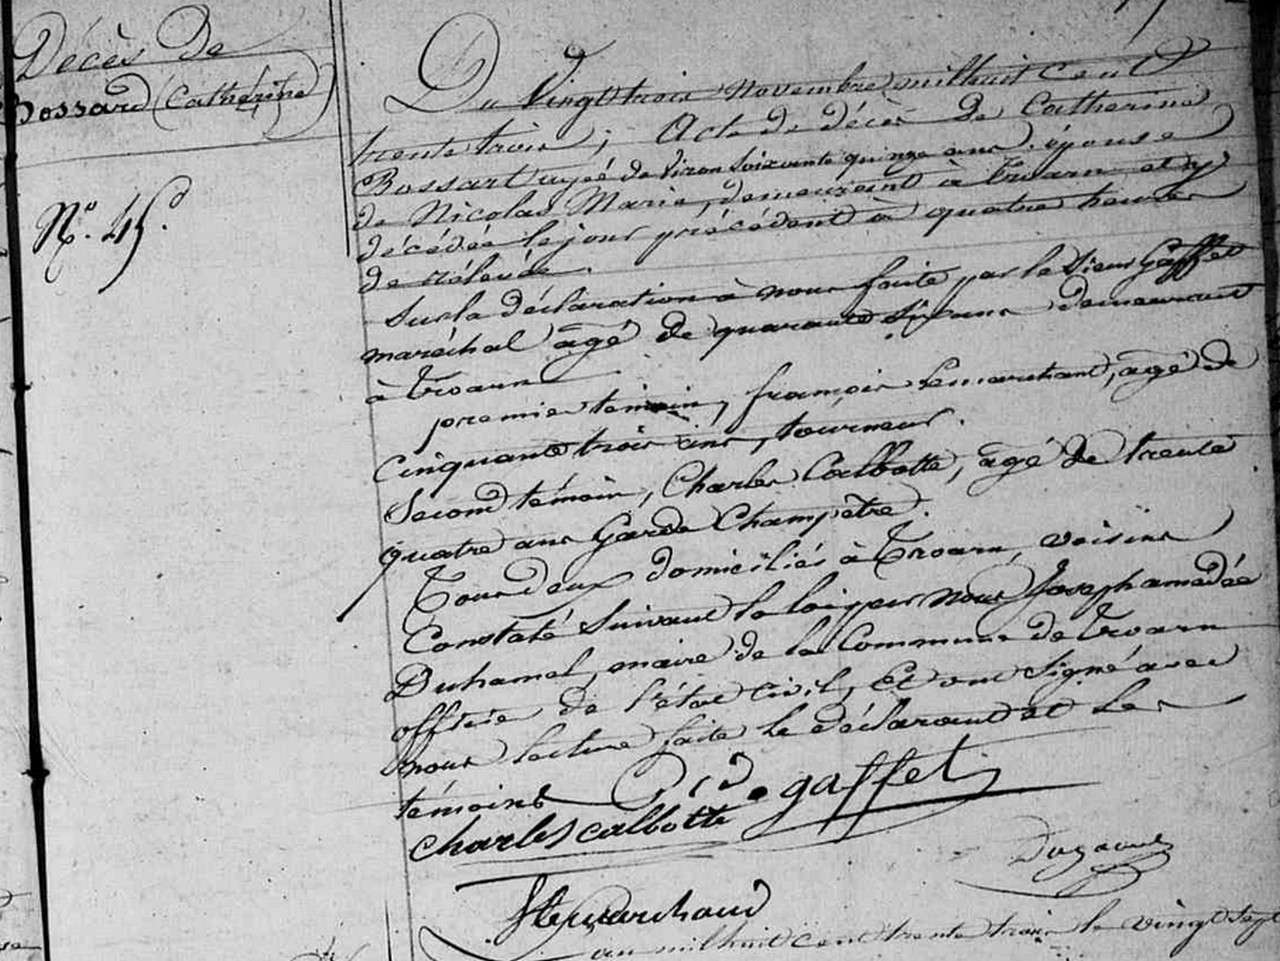 Décès de
Bossard (Catherine)
N.º 45.
Du Vingt trois novembre mil huit cent
trente trois, Acte de décès de Catherine
Bossart agée de viron soixante quinze ans, épouse
de Nicolas Marie, demeurant à Troarn et y
décédée le jour précédent à quatre heures
de rélevée.
Sur la déclaration à nous faite par le sieur Gaffet
maréchal âgé de quarante six ans demeurant
à Troarn
premier temoin, françois Lemarchand, âgé de
cinquante trois ans, tourneur.
Second témoin, Charles Calbotte, âgé de trente
quatre ans Garde Champêtre.
Tous deux domiciliés à Troarn, voisins
Constaté suivant la loi par nous Joseph amédée
Duhamel, maire de la Commune de Troarn
officier de l'état civil, Et ont signé avec
nous lecture faite le déclarant et les
témoins
gaffet
Charles calbotte
Lemarchand
an mil huit cent trente trois le vingt sept